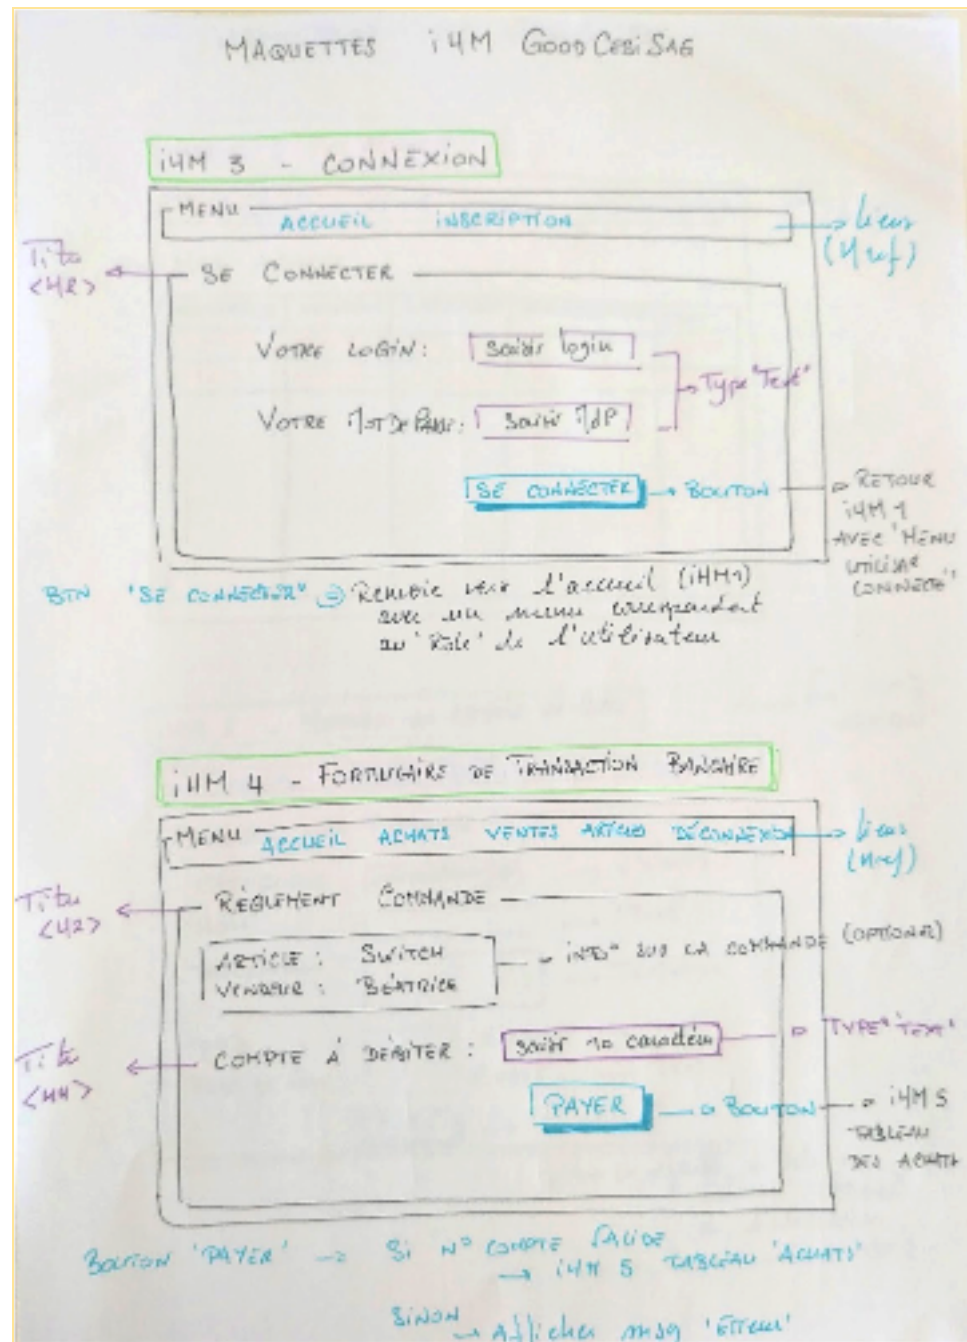 MAQUETTES iHM GOODCEBISAG
iHM 3 - CONNEXION
MENU
ACCUEIL INSCRIPTION
liens
(Href)
Titre
<H2>
SE CONNECTER
VOTRE LOGIN : Saisir login
Type "Text"
VOTRE MOT DE PASSE : Saisir MdP
SE CONNECTER → BOUTON
RETOUR
iHM 1
AVEC 'MENU
CONNECTÉ'
BTN "SE CONNECTER" Renvoie vers l'accueil (iHM1)
avec un menu correspondant
au 'Rôle' de l'utilisateur
iHM 4 - FORMULAIRE DE TRANSACTION BANCAIRE
MENU
ACCUEIL ACHATS VENTES ARTICLES DÉCONNEXION
liens
(Href)
Titre
<H2>
RÈGLEMENT COMMANDE
ARTICLE : SWITCH
VENDEUR : BÉATRICE
INFO° SUR LA COMMANDE (OPTIONEL)
Titre
<H4>
COMPTE À DÉBITER : Saisir 10 caractères
TYPE "TEXT"
PAYER → BOUTON → iHM 5
TABLEAU
DES ACHATS
BOUTON 'PAYER' → Si N° COMPTE VALIDE
→ iHM 5 TABLEAU 'ACHATS'
SINON
→ Afficher msg 'Erreur'